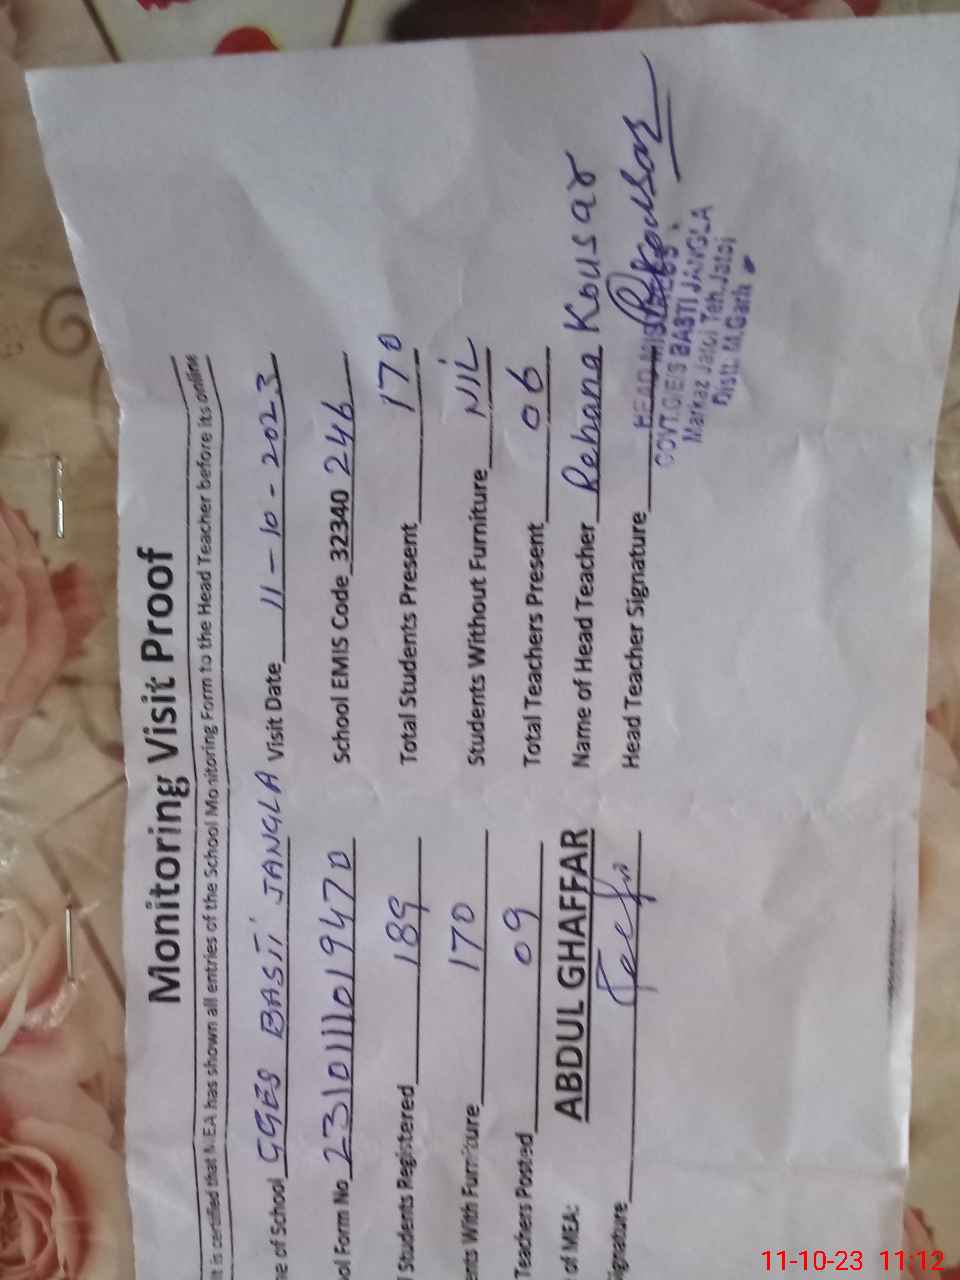 Monitoring Visit Proof
It is certified that MEA has shown all entries of the School Monitoring Form to the Head Teacher before its online
ne of School GGES BASTI JANGLA Visit Date 11-10-2023
ool Form No 2310111019470 School EMIS Code 32340 246
l Students Registered 189 Total Students Present 170
ents With Furniture 170 Students Without Furniture NIL
Teachers Posted 09 Total Teachers Present 06
of MEA: ABDUL GHAFFAR Name of Head Teacher Rehana Kousar
ignature Head Teacher Signature RKousar
HEAD MISTRESS
GOVT.GIE/S BASTI JANGLA
Markaz Jatoi Teh.Jatoi
Distt. M.Garh
11-10-23 11:12